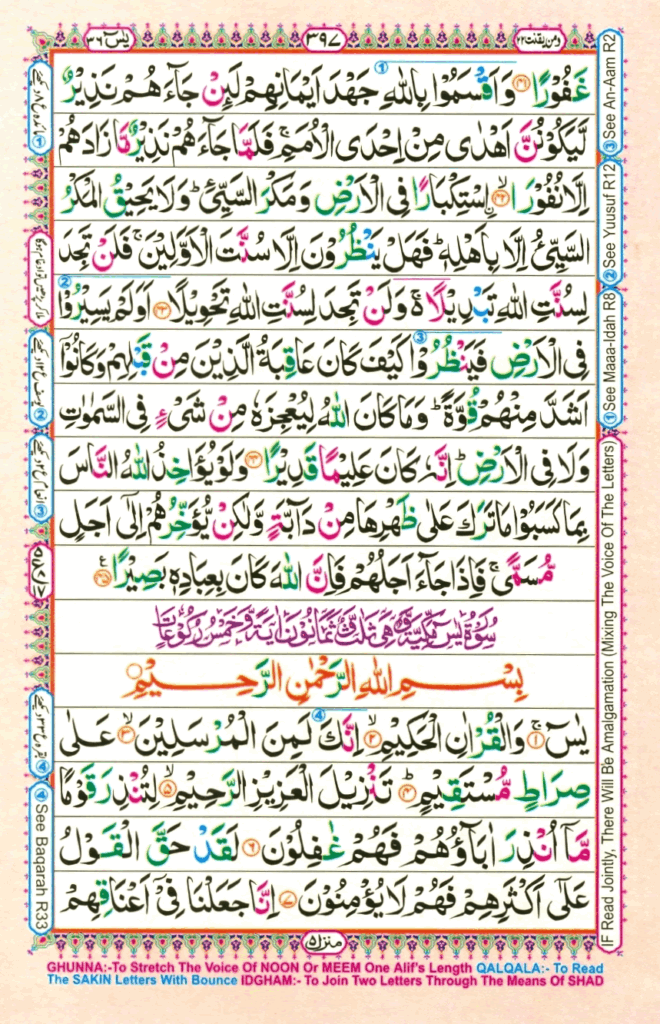 یٰسٓ ۳۶
۳۹۷
ومن یقنت ۲۲
غَفُوْرًا ۝۴۱ وَاَقْسَمُوْا بِاللّٰهِ جَهْدَ اَیْمَانِهِمْ لَىِٕنْ جَآءَهُمْ نَذِیْرٌ
لَّیَكُوْنُنَّ اَهْدٰی مِنْ اِحْدَی الْاُمَمِ ۚ فَلَمَّا جَآءَهُمْ نَذِیْرٌ مَّا زَادَهُمْ
اِلَّا نُفُوْرَا ۝۴۲ۙ اِسْتِكْبَارًا فِی الْاَرْضِ وَمَكْرَ السَّیِّئِ ؕ وَلَا یَحِیْقُ الْمَكْرُ
السَّیِّئُ اِلَّا بِاَهْلِهٖ ؕ فَهَلْ یَنْظُرُوْنَ اِلَّا سُنَّتَ الْاَوَّلِیْنَ ۚ فَلَنْ تَجِدَ
لِسُنَّتِ اللّٰهِ تَبْدِیْلًا ۚ۬ وَلَنْ تَجِدَ لِسُنَّتِ اللّٰهِ تَحْوِیْلًا ۝۴۳ اَوَلَمْ یَسِیْرُوْا
فِی الْاَرْضِ فَیَنْظُرُوْا كَیْفَ كَانَ عَاقِبَةُ الَّذِیْنَ مِنْ قَبْلِهِمْ وَكَانُوْۤا
اَشَدَّ مِنْهُمْ قُوَّةً ؕ وَمَا كَانَ اللّٰهُ لِیُعْجِزَهٗ مِنْ شَیْءٍ فِی السَّمٰوٰتِ
وَلَا فِی الْاَرْضِ ؕ اِنَّهٗ كَانَ عَلِیْمًا قَدِیْرًا ۝۴۴ وَلَوْ یُؤَاخِذُ اللّٰهُ النَّاسَ
بِمَا كَسَبُوْا مَا تَرَكَ عَلٰی ظَهْرِهَا مِنْ دَآبَّةٍ وَّلٰكِنْ یُّؤَخِّرُهُمْ اِلٰۤی اَجَلٍ
مُّسَمًّی ۚ فَاِذَا جَآءَ اَجَلُهُمْ فَاِنَّ اللّٰهَ كَانَ بِعِبَادِهٖ بَصِیْرًا ۝۴۵ ع
سُوْرَةُ یٰسٓ مَكِّیَّةٌ وَّهِیَ ثَلٰثٌ وَّثَمَانُوْنَ اٰیَةً وَّخَمْسُ رُكُوْعَاتٍ
بِسْمِ اللّٰهِ الرَّحْمٰنِ الرَّحِیْمِ
یٰسٓ ۝۱ۚ وَالْقُرْاٰنِ الْحَكِیْمِ ۝۲ۙ اِنَّكَ لَمِنَ الْمُرْسَلِیْنَ ۝۳ۙ عَلٰی
صِرَاطٍ مُّسْتَقِیْمٍ ۝۴ؕ تَنْزِیْلَ الْعَزِیْزِ الرَّحِیْمِ ۝۵ۙ لِتُنْذِرَ قَوْمًا
مَّاۤ اُنْذِرَ اٰبَآؤُهُمْ فَهُمْ غٰفِلُوْنَ ۝۶ لَقَدْ حَقَّ الْقَوْلُ
عَلٰۤی اَكْثَرِهِمْ فَهُمْ لَا یُؤْمِنُوْنَ ۝۷ اِنَّا جَعَلْنَا فِیْۤ اَعْنَاقِهِمْ
منزل ۵
③ See An-Aam R2
② See Yuusuf R12
① See Maaa-Idah R8
IF Read Jointly, There Will Be Amalgamation (Mixing The Voice Of The Letters)
④ See Baqarah R33
GHUNNA:-To Stretch The Voice Of NOON Or MEEM One Alif's Length QALQALA:- To Read
The SAKIN Letters With Bounce IDGHAM:- To Join Two Letters Through The Means Of SHAD